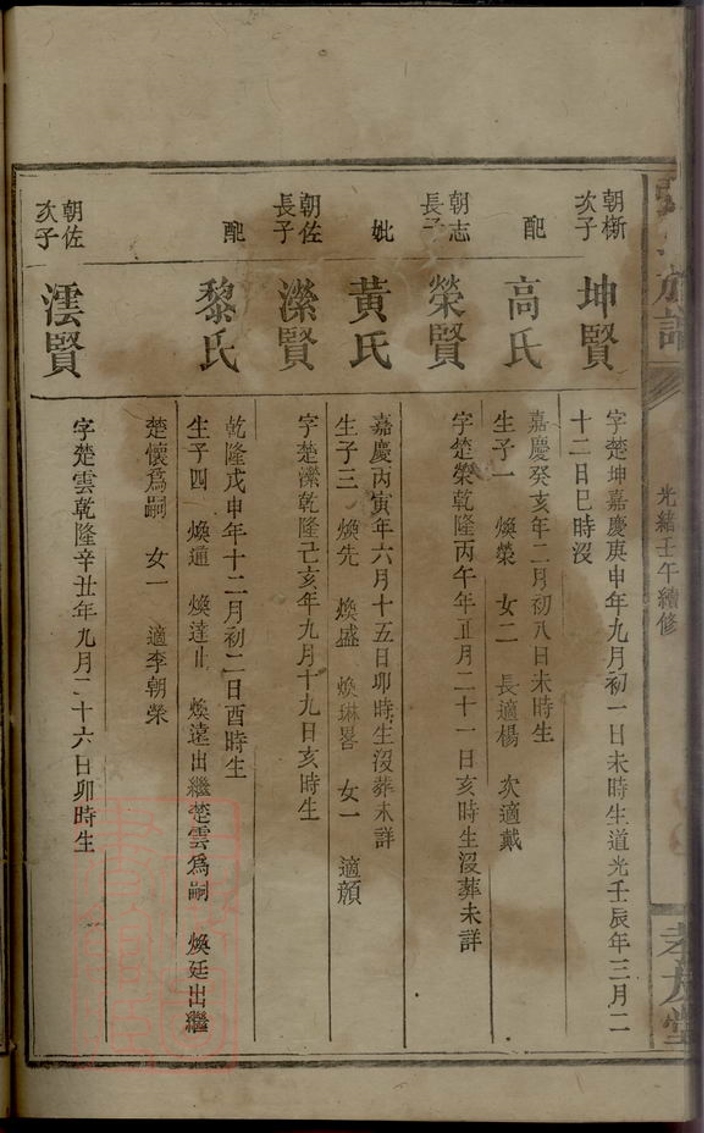 族譜
光緒壬午續修
孝友堂
朝槲
次子
坤賢
字楚坤嘉慶庚申年九月初一日未時生道光壬辰年三月二
十二日巳時沒
配
高氏
嘉慶癸亥年二月初八日未時生
生子一 煥榮 女二 長適楊 次適戴
朝志
長子
榮賢
字楚榮乾隆丙午年正月二十一日亥時生沒葬未詳
妣
黃氏
嘉慶丙寅年六月十五日卯時生沒葬未詳
生子三 煥先 煥盛 煥琳畧 女一 適顏
朝佐
長子
濚賢
字楚濚乾隆己亥年九月十九日亥時生
配
黎氏
乾隆戊申年十二月初二日酉時生
生子四 煥通 煥達止 煥遠出繼楚雲為嗣 煥廷出繼
楚懷為嗣 女一 適李朝榮
朝佐
次子
澐賢
字楚雲乾隆辛丑年九月二十六日卯時生